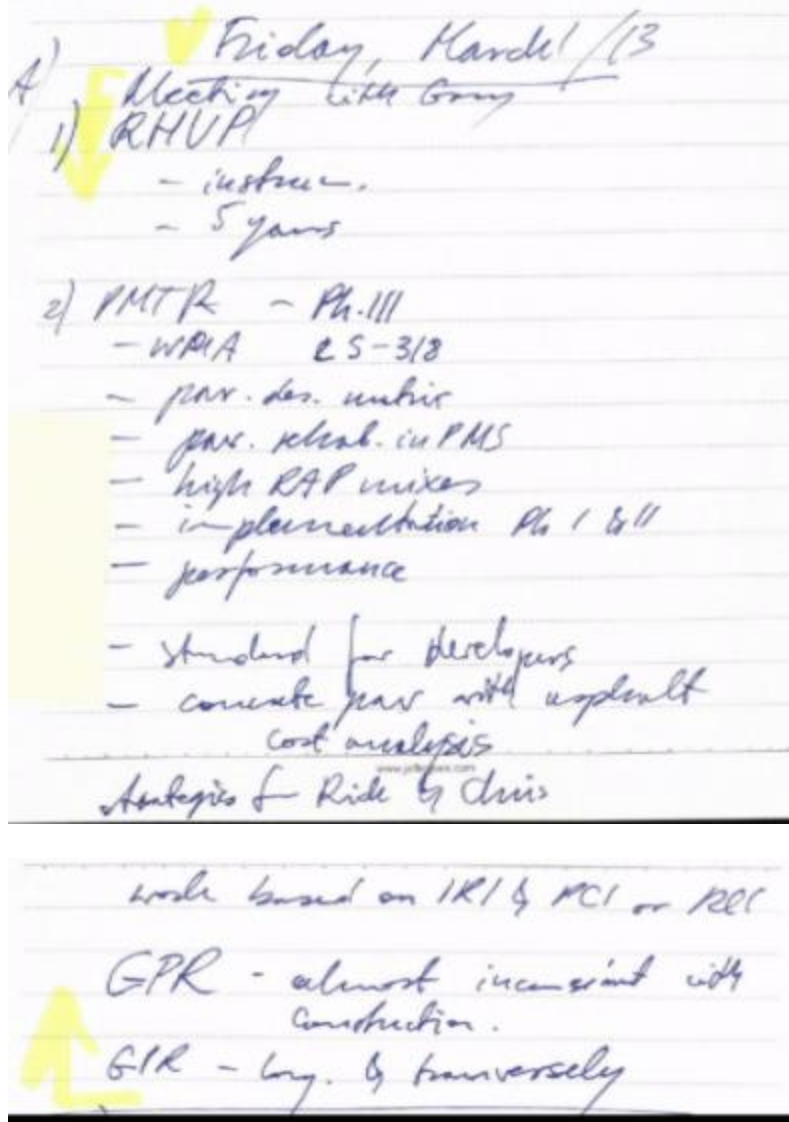 Friday, March 1/13
A) Meeting with Gary
1) RHVP
- instrum.
- 5 years
2) PMTR - Ph.III
- WMA ES-318
- pav. des. matrix
- pav. rehab. in PMS
- high RAP mixes
- implementation Ph I & II
- performance
- standard for developers
- concrete pav with asphalt
cost analysis
strategies for Rick & Chris
work based on IRI & PCI or
GPR - almost with
construction.
- long. & transversely